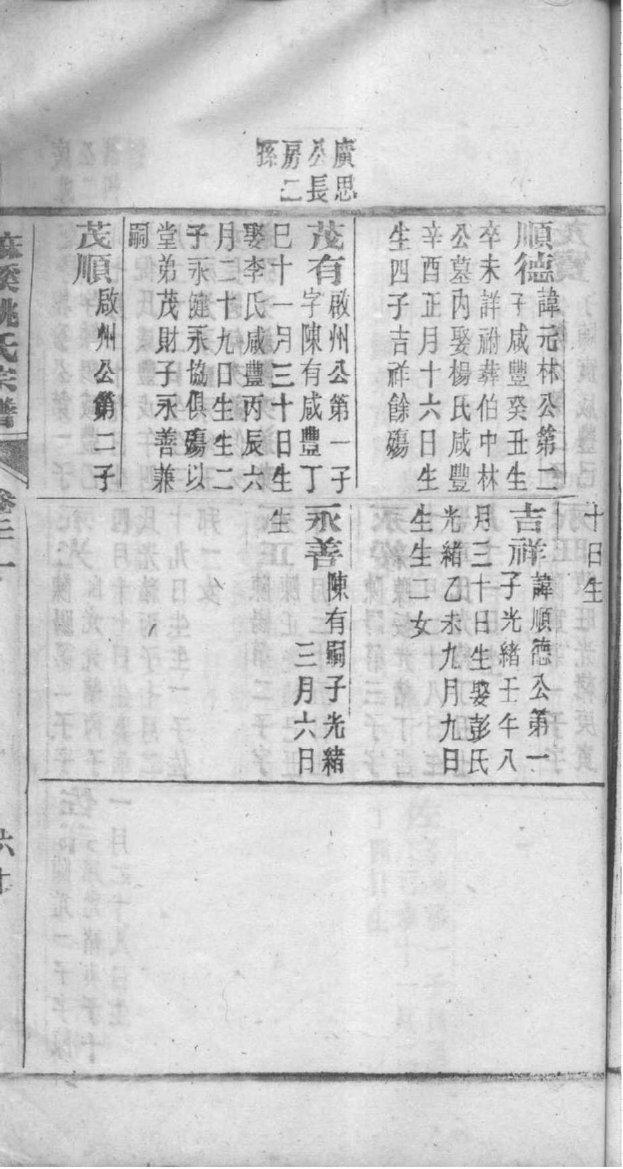 廣思
公長
房二
孫
順德諱元林公第二
子咸豐癸丑生
卒未詳祔葬伯中林
公墓內娶楊氏咸豐
辛酉正月十六日生
生四子吉祥餘殤
茂有啟州公第一子
字陳有咸豐丁
巳十一月三十日生
娶李氏咸豐丙辰六
月二十九日生生二
子永健永協俱殤以
堂弟茂財子永善兼
嗣
茂順啟州公第二子
十日生
吉祥諱順德公第一
子光緒壬午八
月三十日生娶彭氏
光緒乙未九月九日
生生一女
永善陳有嗣子光緒
三月六日
生
姚氏宗譜